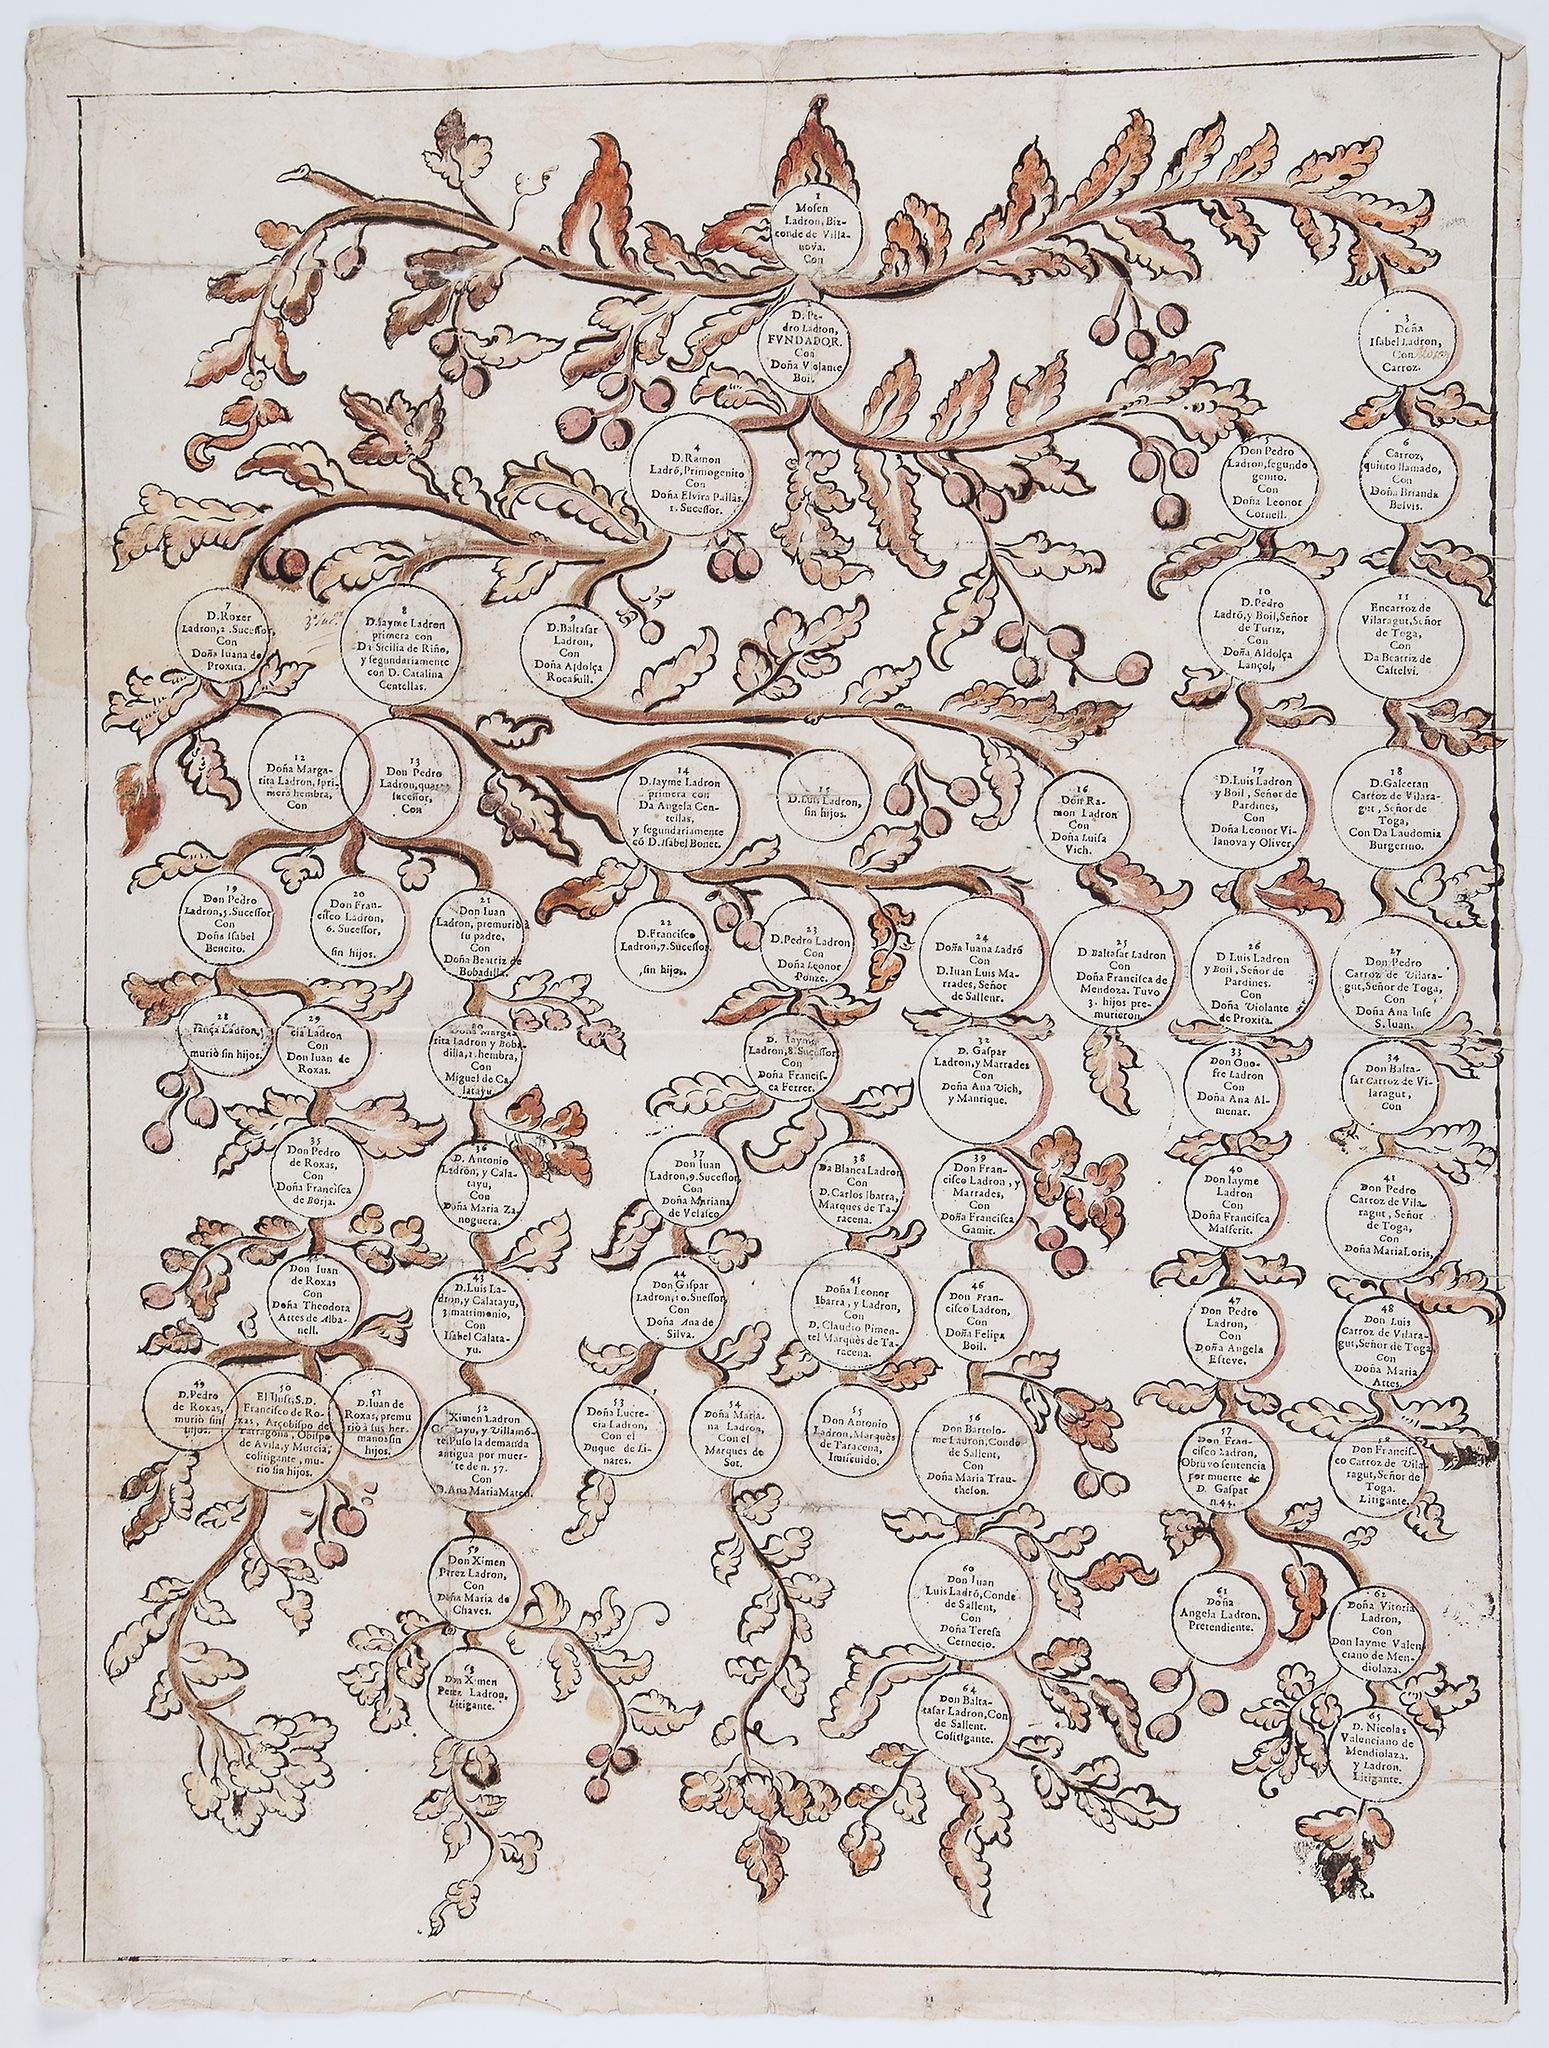 1
Mosen
Ladron, Biz-
conde de Villa-
nova.
Con
D. Pe-
dro Ladron,
FVNDADOR.
Con
Doña Violante
Boil.
3
Doña
Isabel Ladron,
Con
Carroz.
4
D. Ramon
Ladrō, Primogenito
Con
Doña Elvira Pallàs.
1. Sucessor.
5
Don Pedro
Ladron, segundo
genito.
Con
Doña Leonor
Cornell.
6
Carroz,
quinto llamado,
Con
Doña Brianda
Belvis.
7
D. Roxer
Ladron, 2. Sucessor,
Con
Doña Iuana de
Proxita.
8
D. Iayme Ladron
primera con
Da Sicilia de Riño,
y segundariamente
con D. Catalina
Centellas.
9
D. Baltasar
Ladron,
Con
Doña Aldolça
Rocafull.
10
D. Pedro
Ladrō, y Boil, Señor
de Turiz,
Con
Doña Aldolça
Lançol,
11
Encarroz de
Vilaragut, Señor
de Toga,
Con
Da Beatriz de
Castelvi.
12
Doña Marga-
rita Ladron, 1 pri-
mera hembra,
Con
13
Don Pedro
Ladron, quar
sucessor,
Con
14
D. Iayme Ladron
primera con
Da Angela Cen-
tellas,
y segundariamente
cō D. Isabel Bonet.
15
D. Luis Ladron,
sin hijos.
16
Don Ra-
mon Ladron
Con
Doña Luisa
Vich.
17
D. Luis Ladron
y Boil, Señor de
Pardines,
Con
Doña Leonor Vi-
lanova y Oliver.
18
D. Galceran
Carroz de Vilara-
gut, Señor de
Toga,
Con Da Laudomia
Burgerino.
19
Don Pedro
Ladron, 5. Sucessor
Con
Doña Isabel
Beneito.
20
Don Fran-
cisco Ladron,
6. Sucessor,
sin hijos.
21
Don Iuan
Ladron, premuriò à
su padre,
Con
Doña Beatriz de
Bobadilla.
22
D. Francisco
Ladron, 7. Sucessor.
sin hijos.
23
D. Pedro Ladron
Con
Doña Leonor
Ponze.
24
Doña Iuana Ladrō
Con
D. Iuan Luis Ma-
rrades, Señor
de Sallent.
25
D. Baltasar Ladron
Con
Doña Francisca de
Mendoza. Tuvo
3. hijos pre-
murieron.
26
D. Luis Ladron
y Boil, Señor de
Pardines.
Con
Doña Violante
de Proxita.
27
Don Pedro
Carroz de Vilara-
gut, Señor de Toga,
Con
Doña Ana Inse
S. Iuan.
28
Ladron,
muriò sin hijos.
29
cia Ladron
Con
Don Iuan de
Roxas.
Doña Marga-
rita Ladron y Boba-
dilla, 2. hembra,
Con
Miguel de Ca-
latayu.
D. Iayme
Ladron, 8. Sucessor
Con
Doña Francis-
ca Ferrer.
32
D. Gaspar
Ladron, y Marrades
Con
Doña Ana Vich,
y Manrique.
33
Don Ono-
fre Ladron
Con
Doña Ana Al-
menar.
34
Don Balta-
sar Carroz de Vi-
laragut,
Con
35
Don Pedro
de Roxas,
Con
Doña Francisca
de Borja.
36
D. Antonio
Ladron, y Cala-
tayu,
Con
Doña Maria Za-
noguera.
37
Don Iuan
Ladron, 9. Sucessor
Con
Doña Mariana
de Velasco
38
Da Blanca Ladron
Con
D. Carlos Ibarra,
Marques de Ta-
racena.
39
Don Fran-
cisco Ladron, y
Marrades,
Con
Doña Francisca
Gamir.
40
Don Iayme
Ladron
Con
Doña Francisca
Masferit.
41
Don Pedro
Carroz de Vila-
ragut, Señor
de Toga,
Con
Doña Maria Loris,
Don Iuan
de Roxas
Con
Doña Theodora
Artes de Alba-
nell.
43
D. Luis La-
dron, y Calatayu,
3 matrimonio,
Con
Isabel Calata-
yu.
44
Don Gaspar
Ladron, 10. Suessor
Con
Doña Ana de
Silva.
45
Doña Leonor
Ibarra, y Ladron,
Con
D. Claudio Pimen-
tel Marquès de Ta-
racena.
46
Don Fran-
cisco Ladron,
Con
Doña Felipa
Boil.
47
Don Pedro
Ladron,
Con
Doña Angela
Esteve.
48
Don Luis
Carroz de Vilara-
gut, Señor de Toga
Con
Doña Maria
Artes.
49
D. Pedro
de Roxas,
muriò sin
hijos.
50
El Ilust. S. D.
Francisco de Ro-
xas, Arçobispo de
Tarragona, Obispo
de Avila, y Murcia,
colitigante, mu-
riò sin hijos.
51
D. Iuan de
Roxas, premu-
riò à sus her-
manos sin
hijos.
52
Ximen Ladron
Calatayu, y Villamō-
te. Puso la demanda
antigua por muer-
te de n. 57.
Con
D. Ana Maria Mateu.
53
Doña Lucre-
cia Ladron,
Con el
Duque de Li-
nares.
54
Doña Maria-
na Ladron,
Con el
Marquès de
Sot.
55
Don Antonio
Ladron, Marquès
de Taracena,
Inmeuido.
56
Don Bartolo-
me Ladron, Conde
de Sallent,
Con
Doña Maria Trau-
thelon.
57
Don Fran-
cisco Ladron,
Obtuvo sentencia
por muerte de
D. Gaspar
n. 44.
58
Don Francis-
co Carroz de Vila-
ragut, Señor de
Toga.
Litigante.
59
Don Ximen
Perez Ladron,
Con
Doña Maria de
Chaves.
60
Don Iuan
Luis Ladrō, Conde
de Sallent,
Con
Doña Teresa
Cernecio.
61
Doña
Angela Ladron.
Pretendiente.
62
Doña Vitoria
Ladron,
con
Don Iayme Valen
ciano de Men-
diolaza.
63
Don Ximen
Perez Ladron,
Litigante.
64
Don Balta-
tasar Ladron, Con
de Sallent.
Colitigante.
65
D. Nicolas
Valenciano de
Mendiolaza.
y Ladron.
Litigante.